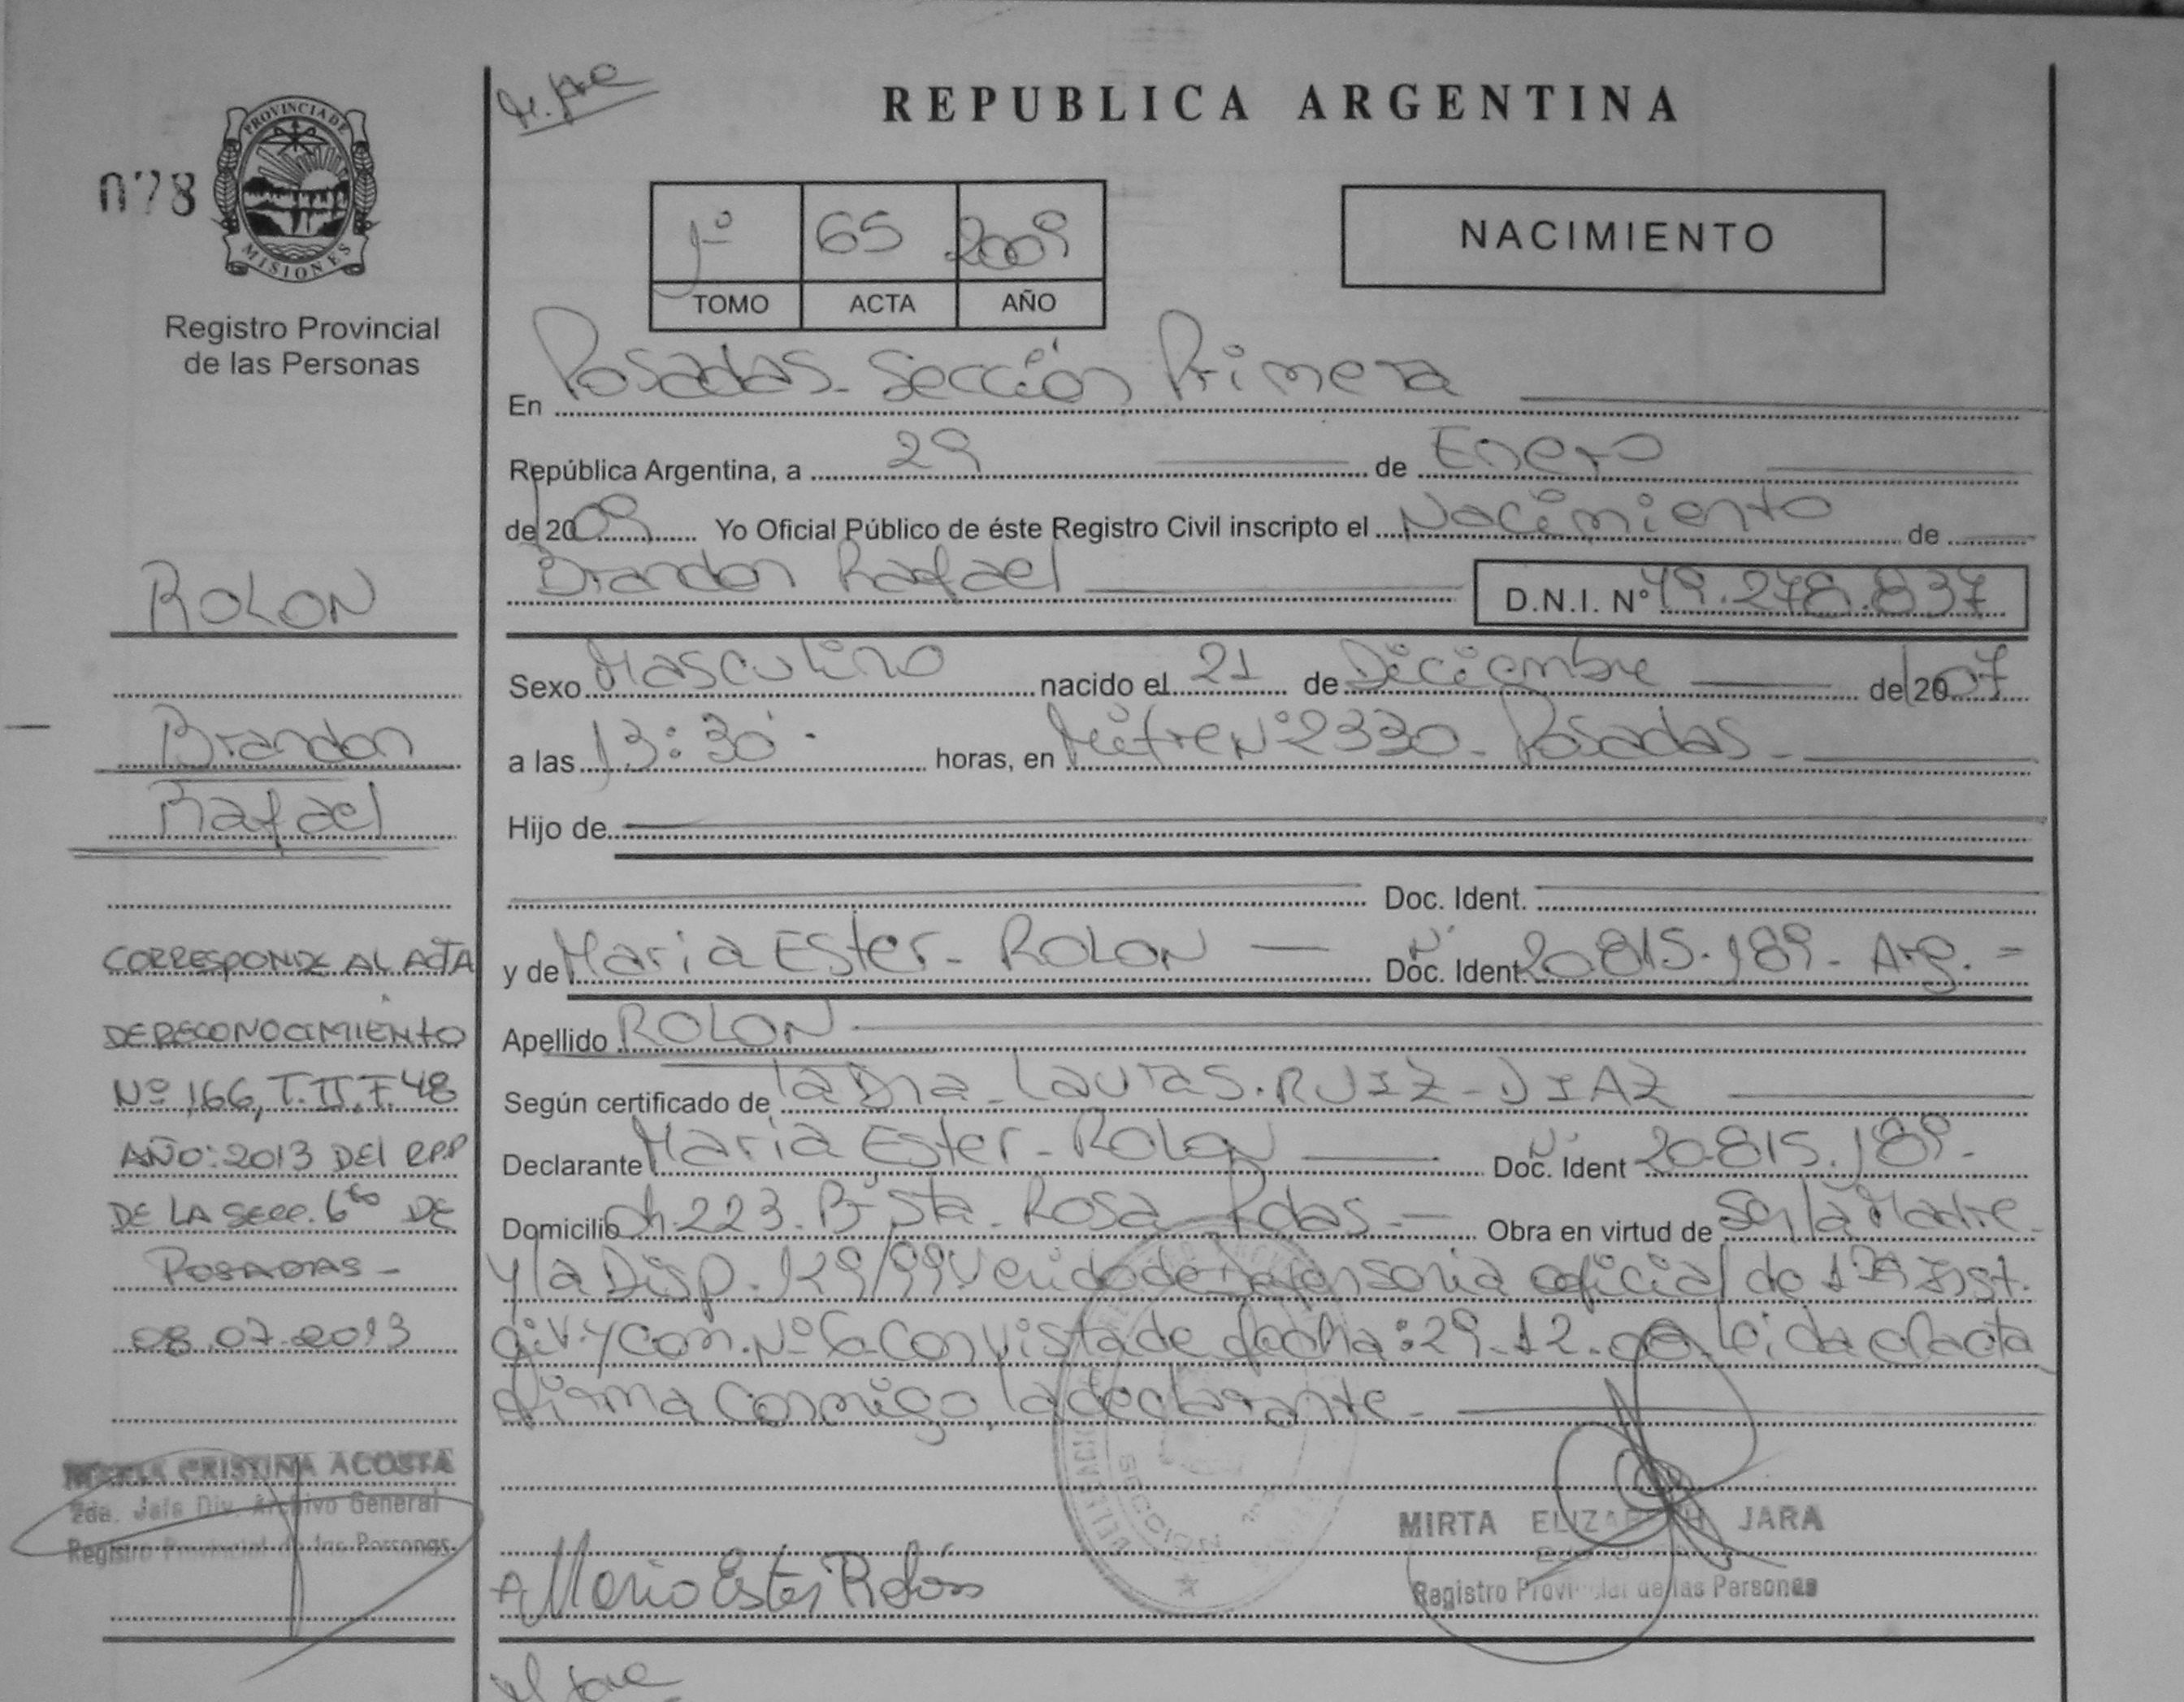 REPUBLICA ARGENTINA
078
PROVINCIA DE
MISIONES
Registro Provincial
de las Personas
1º 65 2009
TOMO ACTA AÑO
NACIMIENTO
En Posadas - Sección Primera
República Argentina, a 29 de Enero
de 2009 Yo Oficial Público de éste Registro Civil inscripto el Nacimiento de
Brandon Rafael D.N.I. Nº 49.278.837
Sexo Masculino nacido el 21 de Diciembre de 2007
a las 13:30 horas, en Mitre Nº 2330 - Posadas -
Hijo de
Doc. Ident.
y de Maria Ester - ROLON Doc. Ident. Nº 20.815.189 - Arg. =
Apellido ROLON
Según certificado de la Dra. Laura S. RUIZ - DIAZ
Declarante Maria Ester - Rolon Doc. Ident Nº 20.815.189 -
Domicilio Ch. 223. Bº Sta. Rosa Pdas. - Obra en virtud de Ser la Madre
y la Disp. 129/99 Venido de Defensoria oficial de 1ra Inst.
Civ. y Com. Nº 6 Con vista de fecha: 29-12- Leida el acta
firma Conmigo, la declarante -
ROLON
Brandon
Rafael
CORRESPONDE AL ACTA
DE RECONOCIMIENTO
Nº 166, T. II, F. 48
AÑO: 2013 DEL RPP
DE LA SECC. 6ta DE
POSADAS -
08.07.2013
CRISTINA ACOSTA
2da. Jefa Div. Archivo General
Registro Provincial de las Personas
Maria Ester Rolón
MIRTA ELIZABETH JARA
Registro Provincial de las Personas
SECCION